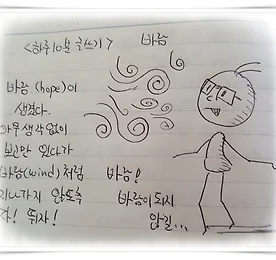 <하루10분 글쓰기> 바람
바람 (hope)이
생겼다.
아무생각없이
보고만 있다가
바람(wind)처럼
지나가지 않도록
자! 뛰자!
바람!
바람이되지
않길...